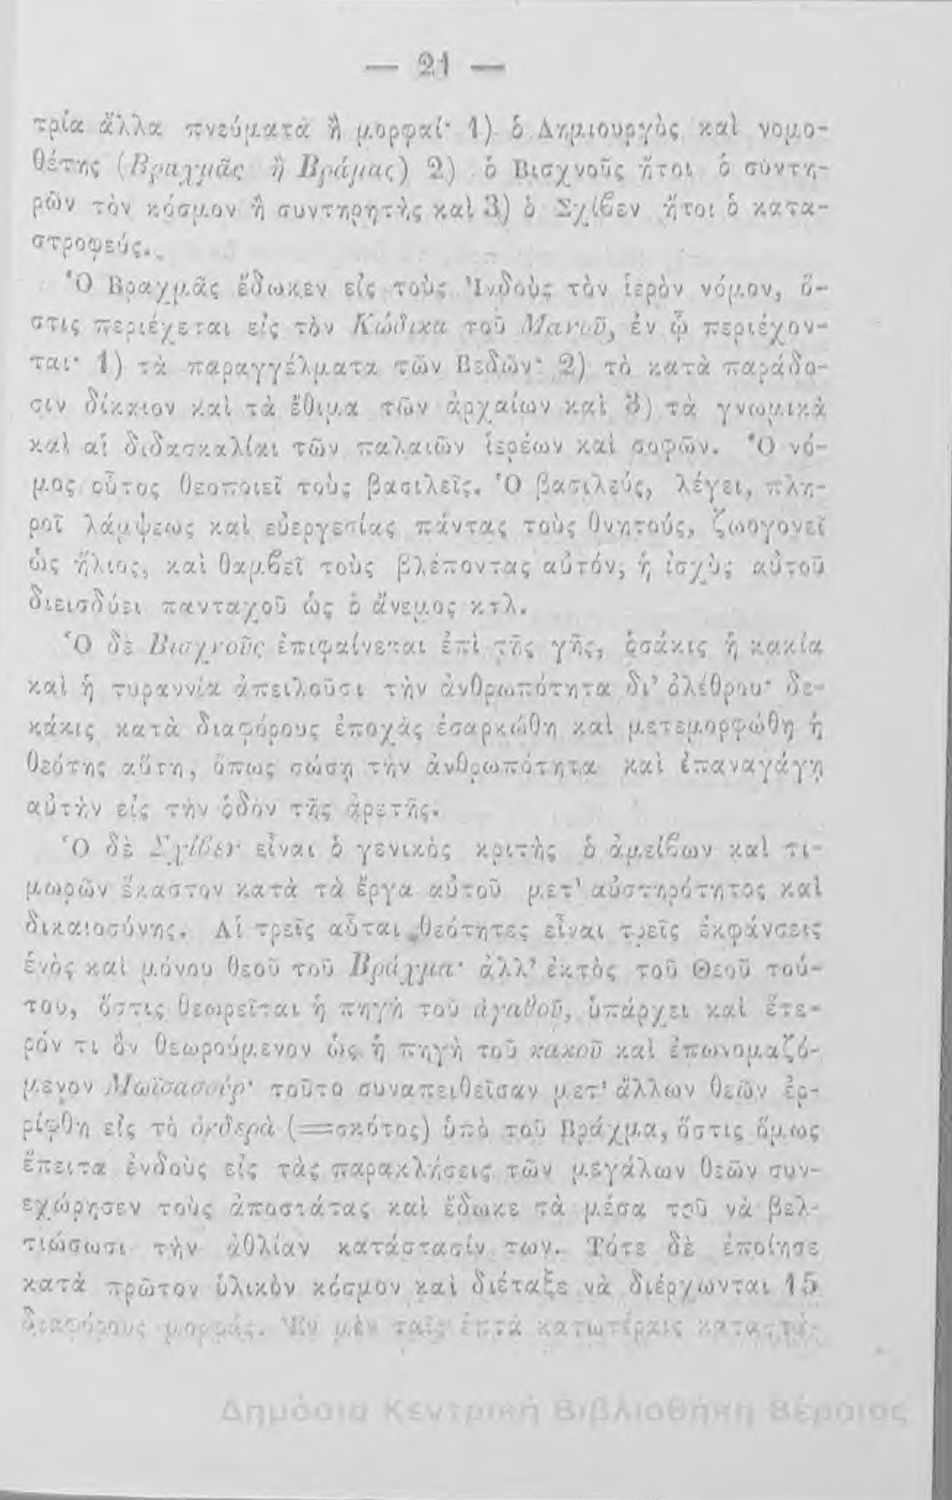 — 21 —
τρία ἄλλα πνεύματα ἢ μορφαί· 1) ὁ Δημιουργὸς καὶ νομο-
θέτης (Βραχμᾶς ἢ Βράμας) 2) ὁ Βισχνοῦς ἤτοι ὁ συντη-
ρῶν τὸν κόσμον ἢ συντηρητὴς καὶ 3) ὁ Σχίϐεν ἤτοι ὁ κατα-
στροφεύς.
Ὁ Βραχμᾶς ἔδωκεν εἰς τοὺς Ἰνδοὺς τὸν ἱερὸν νόμον, ὅ-
στις περιέχεται εἰς τὸν Κώδικα τοῦ Μανοῦ, ἐν ᾧ περιέχον-
ται· 1) τὰ παραγγέλματα τῶν Βεδῶν· 2) τὸ κατὰ παράδο-
σιν δίκαιον καὶ τὰ ἔθιμα τῶν ἀρχαίων καὶ 3) τὰ γνωμικὰ
καὶ αἱ διδασκαλίαι τῶν παλαιῶν ἱερέων καὶ σοφῶν. Ὁ νό-
μος οὗτος θεοποιεῖ τοὺς βασιλεῖς. Ὁ βασιλεύς, λέγει, πλη-
ροῖ λάμψεως καὶ εὐεργεσίας πάντας τοὺς θνητούς, ζωογονεῖ
ὡς ἥλιος, καὶ θαμϐεῖ τοὺς βλέποντας αὐτόν, ἡ ἰσχὺς αὐτοῦ
διεισδύει πανταχοῦ ὡς ὁ ἄνεμος κτλ.
Ὁ δὲ Βισχνοῦς ἐπιφαίνεται ἐπὶ τῆς γῆς, ὁσάκις ἡ κακία
καὶ ἡ τυραννία ἀπειλοῦσι τὴν ἀνθρωπότητα δι’ ὀλέθρου· δε-
κάκις κατὰ διαφόρους ἐποχὰς ἐσαρκώθη καὶ μετεμορφώθη ἡ
θεότης αὕτη, ὅπως σώσῃ τὴν ἀνθρωπότητα καὶ ἐπαναγάγῃ
αὐτὴν εἰς τὴν ὁδὸν τῆς ἀρετῆς.
Ὁ δὲ Σχίϐεν εἶναι ὁ γενικὸς κριτὴς ὁ ἀμείϐων καὶ τι-
μωρῶν ἕκαστον κατὰ τὰ ἔργα αὐτοῦ μετ’ αὐστηρότητος καὶ
δικαιοσύνης. Αἱ τρεῖς αὗται θεότητες εἶναι τρεῖς ἐκφάνσεις
ἑνὸς καὶ μόνου θεοῦ τοῦ Βράχμα· ἀλλ’ ἐκτὸς τοῦ Θεοῦ τού-
του, ὅστις θεωρεῖται ἡ πηγὴ τοῦ ἀγαθοῦ, ὑπάρχει καὶ ἕτε-
ρόν τι ὂν θεωρούμενον ὡς ἡ πηγὴ τοῦ κακοῦ καὶ ἐπωνομαζό-
μενον Μωϊσασούρ· τοῦτο συναπειθεῖσαν μετ’ ἄλλων θεῶν ἐρ-
ρίφθη εἰς τὸ ὀνδερὰ (=σκότος) ὑπὸ τοῦ Βράχμα, ὅστις ὅμως
ἔπειτα ἐνδοὺς εἰς τὰς παρακλήσεις τῶν μεγάλων θεῶν συν-
εχώρησεν τοὺς ἀποστάτας καὶ ἔδωκε τὰ μέσα τοῦ νὰ βελ-
τιώσωσι τὴν ἀθλίαν κατάστασίν των. Τότε δὲ ἐποίησε
κατὰ πρῶτον ὑλικὸν κόσμον καὶ διέταξε νὰ διέρχωνται 15
διαφόρους μορφάς. Ἐν μὲν ταῖς ἑπτὰ κατωτέραις καταστά-
Δημόσια Κεντρική Βιβλιοθήκη Βέροιας